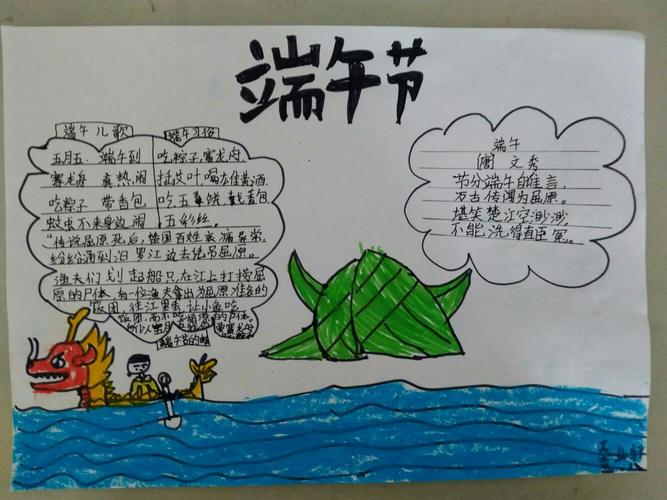 端午节
端午儿歌 端午习俗
五月五 端午到 吃粽子,赛龙舟,
赛龙舟 真热闹 挂艾叶 喝雄黄酒
吃粽子 带香包 吃五毒饼,戴香包
蚊虫不来身边闹 五彩丝。
"传说屈原死后,楚国百姓哀痛异常,
纷纷涌到汨罗江边去凭吊屈原。
渔夫们划起船只,在江上打捞屈
原的尸体,有一位渔夫拿出为屈原准备的
饭团,往江里丢 让小鱼吃
端午
唐 文秀
节分端午自谁言,
万古传闻为屈原。
堪笑楚江空渺渺,
不能洗得直臣冤。